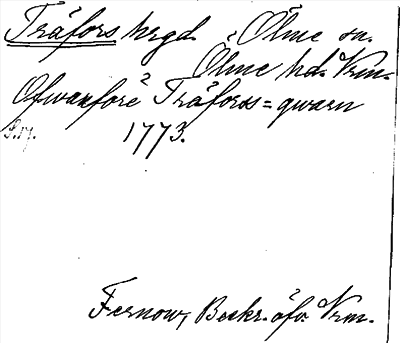 Träfors hrgd. Ölme sn.
Ölme hd. Vrm.
Ofwanföre Träforss=qwarn
S. 17. 1773.
Fernow, Beskr. öfv. Vrm.